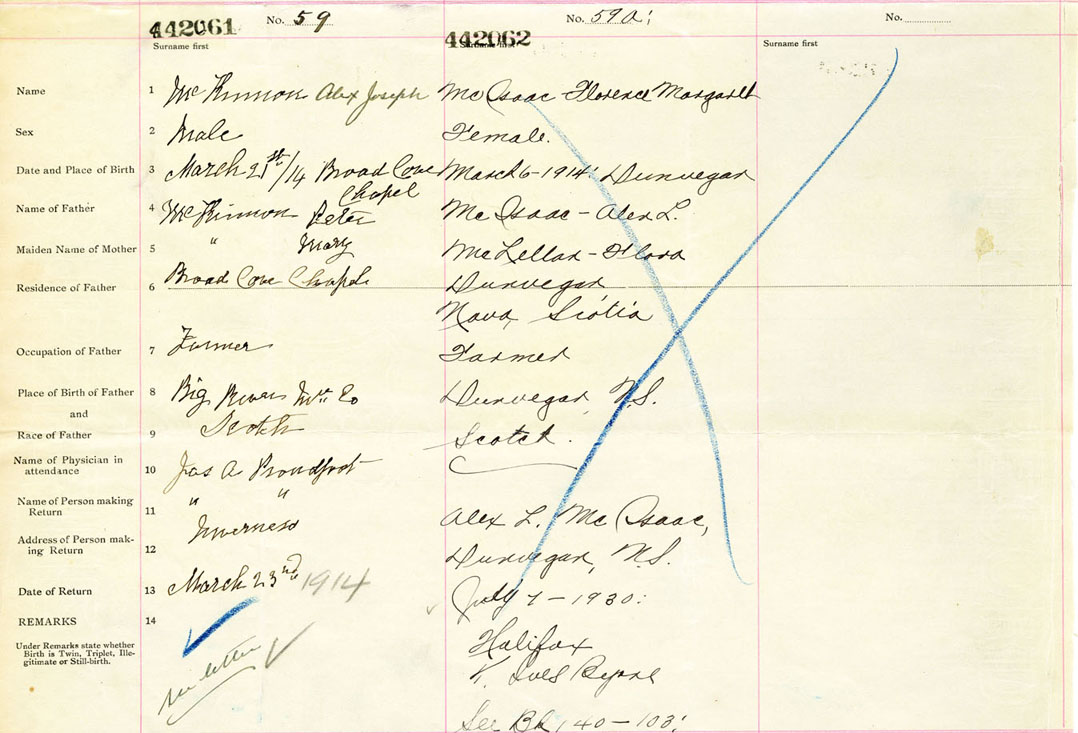 442061
No. 59
442062
No. 59a.
No.
Surname first
Surname first
Surname first
Name
1
McKinnon Alex Joseph
McIsaac Florence Margaret
Sex
2
Male
Female.
Date and Place of Birth
3
March 21st/14 Broad Cove
Chapel
March 6-1914. Dunvegan
Name of Father
4
McKinnon Peter
McIsaac - Alex L.
Maiden Name of Mother
5
" Mary
McLellan - Flora
Residence of Father
6
Broad Cove Chapel
Dunvegan
Nova Scotia
Occupation of Father
7
Farmer
Farmer
Place of Birth of Father
8
Big River Co
Dunvegan, N.S.
and
Race of Father
9
Scotch
Scotch.
Name of Physician in
attendance
10
Jas A Proudfoot
Name of Person making
Return
11
" "
Alex L. McIsaac,
Address of Person mak-
ing Return
12
Inverness
Dunvegan, N.S.
Date of Return
13
March 23rd 1914
July 7-1930.
REMARKS
14
Under Remarks state whether
Birth is Twin, Triplet, Ille-
gitimate or Still-birth.
see letter
Halifax
Ives Byrne
See Bk 140-103.